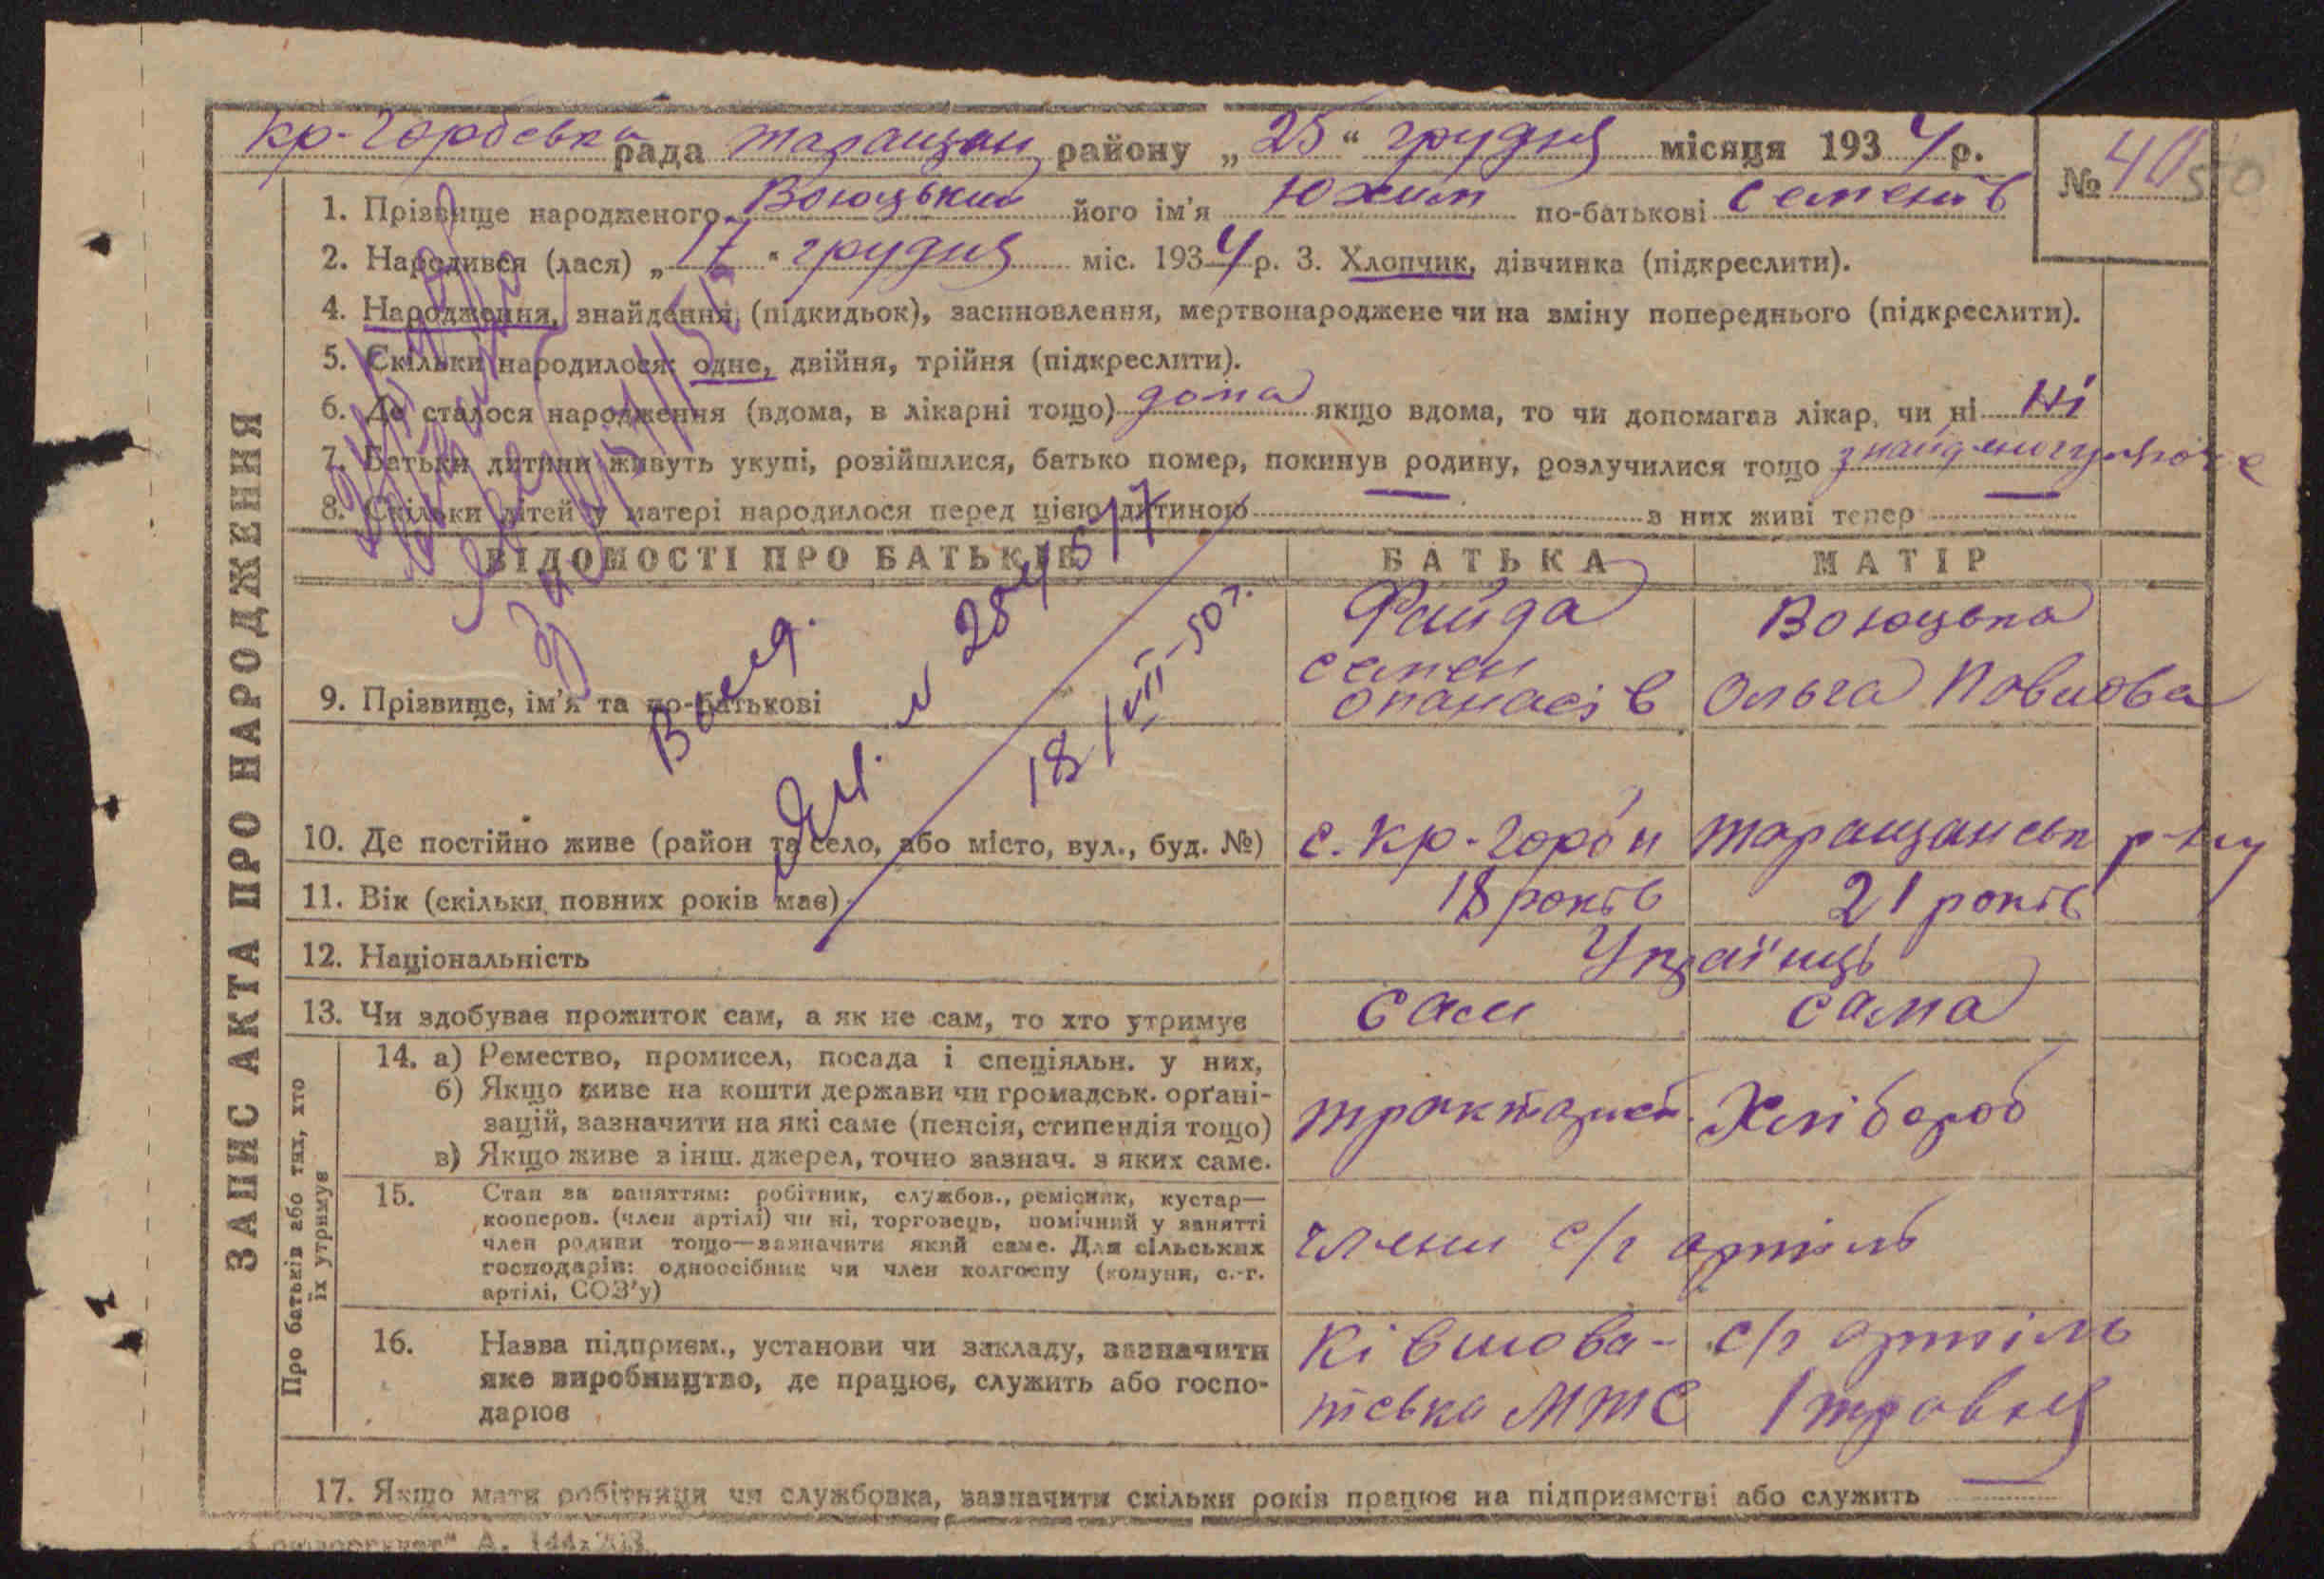 Кр-Горбівка рада Таращан району „25“ грудня місяця 1934 р.
№ 40 50
1. Прізвище народженого Воюцький його ім'я Юхим по-батькові Семенів
2. Народився (лася) „17“ грудня міс. 1934 р. 3. Хлопчик, дівчинка (підкреслити).
4. Народження, знайдення (підкидьок), засиновлення, мертвонароджене чи на зміну попереднього (підкреслити).
5. Скільки народилося: одне, двійня, трійня (підкреслити).
6. Де сталося народження (вдома, в лікарні тощо) дома якщо вдома, то чи допомагав лікар, чи ні Ні
7. Батьки дитини живуть укупі, розійшлися, батько помер, покинув родину, розлучилися тощо
8. Скільки дітей у матері народилося перед цією дитиною — з них живі тепер —
ВІДОМОСТІ ПРО БАТЬКІВ БАТЬКА МАТІР
9. Прізвище, ім'я та по-батькові
Файда Семен Опанасів
Воюцька Ольга Повлова
18/VII-50 г.
10. Де постійно живе (район та село, або місто, вул., буд. №) с. Кр-Горби Таращанськ р-ну
11. Вік (скільки повних років має) 18 років 21 років
12. Національність Українці
13. Чи здобуває прожиток сам, а як не сам, то хто утримує сам сама
14. а) Ремество, промисел, посада і спеціяльн. у них,
б) Якщо живе на кошти держави чи громадськ. орґані-
зацій, зазначити на які саме (пенсія, стипендія тощо)
в) Якщо живе з інш. джерел, точно зазнач. з яких саме.
тракторист. Хлібороб
15. Стан за заняттям: робітник, службов., ремісник, кустар—
кооперов. (член артілі) чи ні, торговець, помічний у занятті
член родини тощо—зазначити який саме. Для сільських
господарів: одноосібник чи член колгоспу (комуни, с.-г.
артілі, СОЗ'у)
члени с/г артіль
16. Назва підприєм., установи чи закладу, зазначити
яке виробництво, де працює, служить або госпо-
дарює
Ківшова-
тська МТС
с/г артіль
1 травня
17. Якщо мати робітниця чи службовка, зазначити скільки років працює на підприємстві або служить —
ЗАПИС АКТА ПРО НАРОДЖЕННЯ
Про батьків або тих, хто
їх утримує